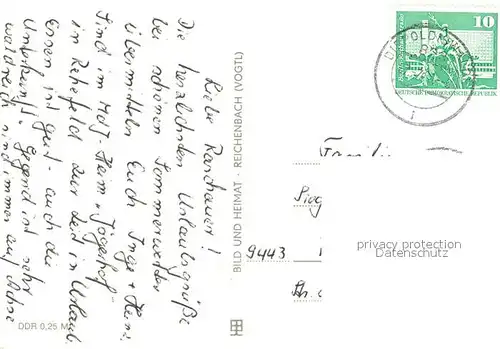 Liebe Raschauer!
Die herzlichsten Urlaubsgrüße
bei schönem Sommerwetter
übermitteln Euch Inge + Heinz
Sind im MdJ-Heim „Jägerhof"
in Rehefeld zur Zeit in Urlaub.
Essen ist gut - auch die
Unterkunft. Gegend ist sehr
waldreich sind immer auf Achse
DDR 0,25 M
BILD UND HEIMAT · REICHENBACH (VOGTL)
10
DEUTSCHE DEMOKRATISCHE REPUBLIK
Familie
9443
Str.
privacy protection
Datenschutz